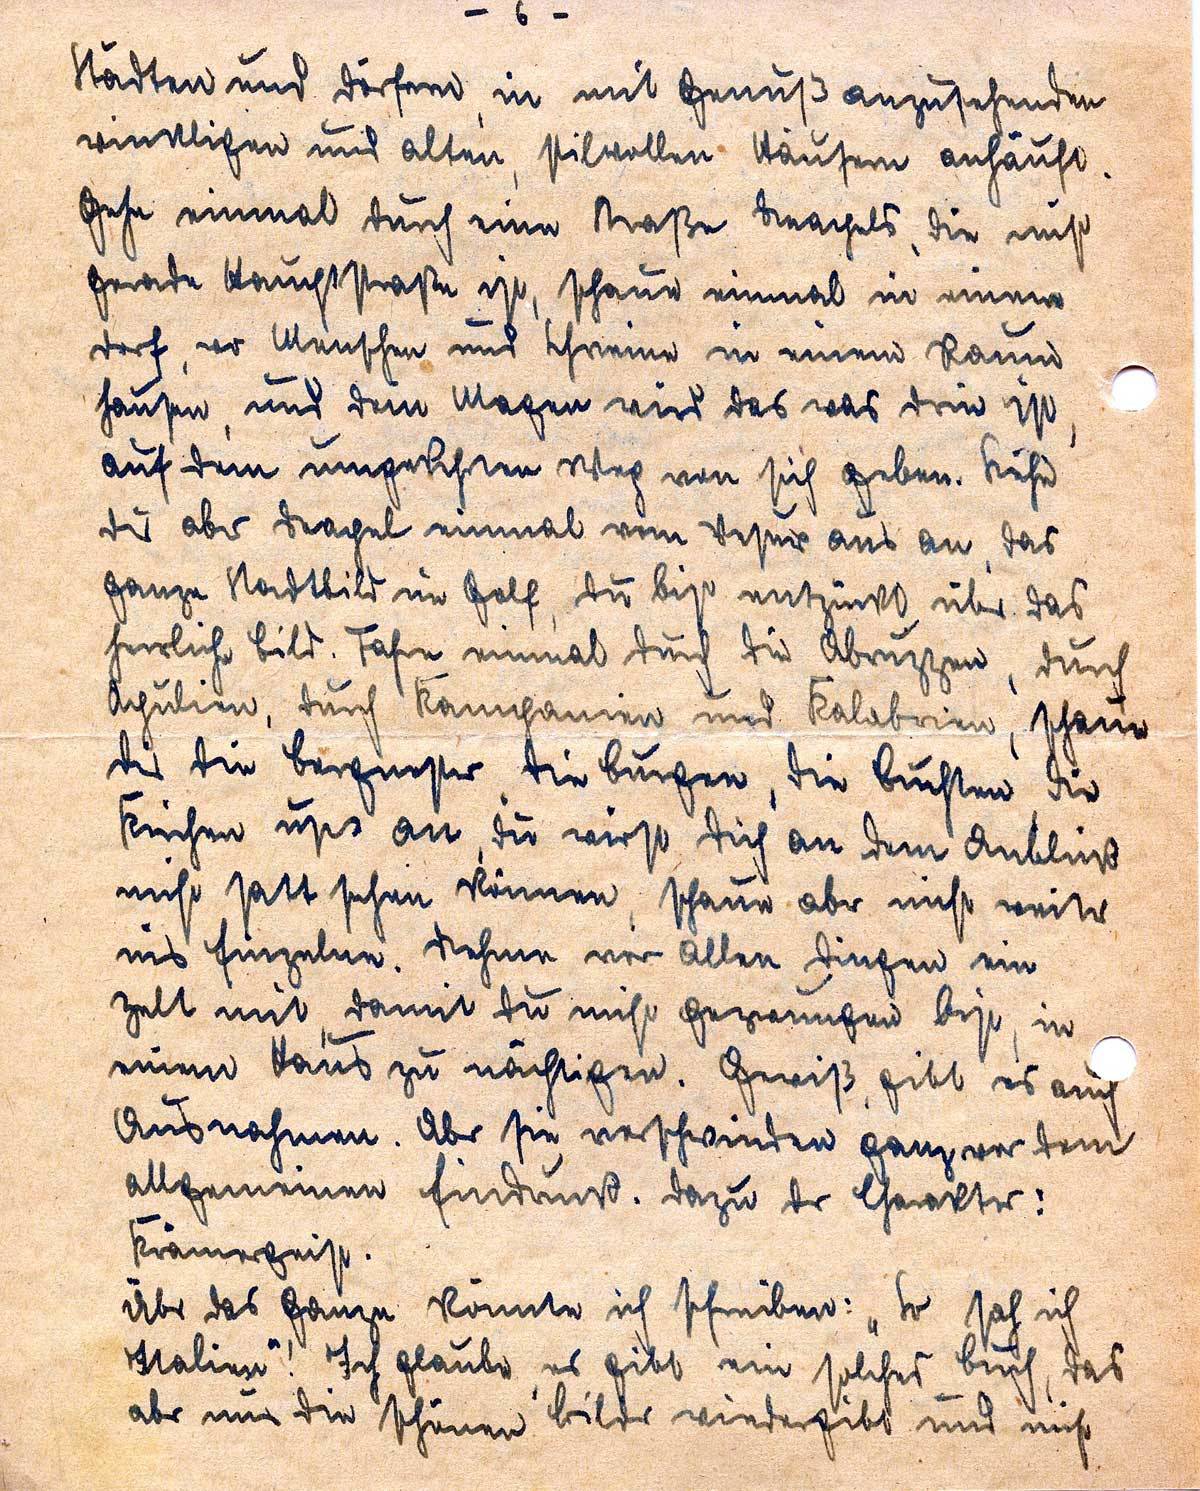 - 6 -
Städten und Dörfern, in mit Genuß anzusehenden
winkligen und alten, stilvollen Häusern anhäuft.
Gehe einmal durch eine Straße Neapels, die nicht
gerade Hauptstraße ist, schaue einmal in einem
Dorf, wo Menschen und Schweine in einem Raum
hausen, und dein Magen wird das was drin ist,
auf dem umgekehrten Weg von sich geben. Siehe
dir aber Neapel einmal vom Vesuv aus an, das
ganze Stadtbild im Golf, du bist entzückt über das
herrliche Bild. Fahre einmal durch die Abruzzen, durch
Apulien, durch Kampanien und Kalabrien, schaue
dir die Bergnester, die Burgen, die Buchten, die
Kirchen usw an, du wirst dich an dem Anblick
nicht satt sehen können, schaue aber nicht weiter
ins Einzelne. Nehme vor allen Dingen ein
Zelt mit, damit du nicht gezwungen bist, in
einem Haus zu nächtigen. Gewiß, gibt es auch
Ausnahmen. Aber sie verschwinden ganz vor dem
allgemeinen Eindruck. Dazu der Charakter:
Krämergeist.
Über das Ganze könnte ich schreiben: „So sah ich
Italien"! Ich glaube, es gibt ein solches Buch, das
aber nur die schönen Bilder wiedergibt und nicht